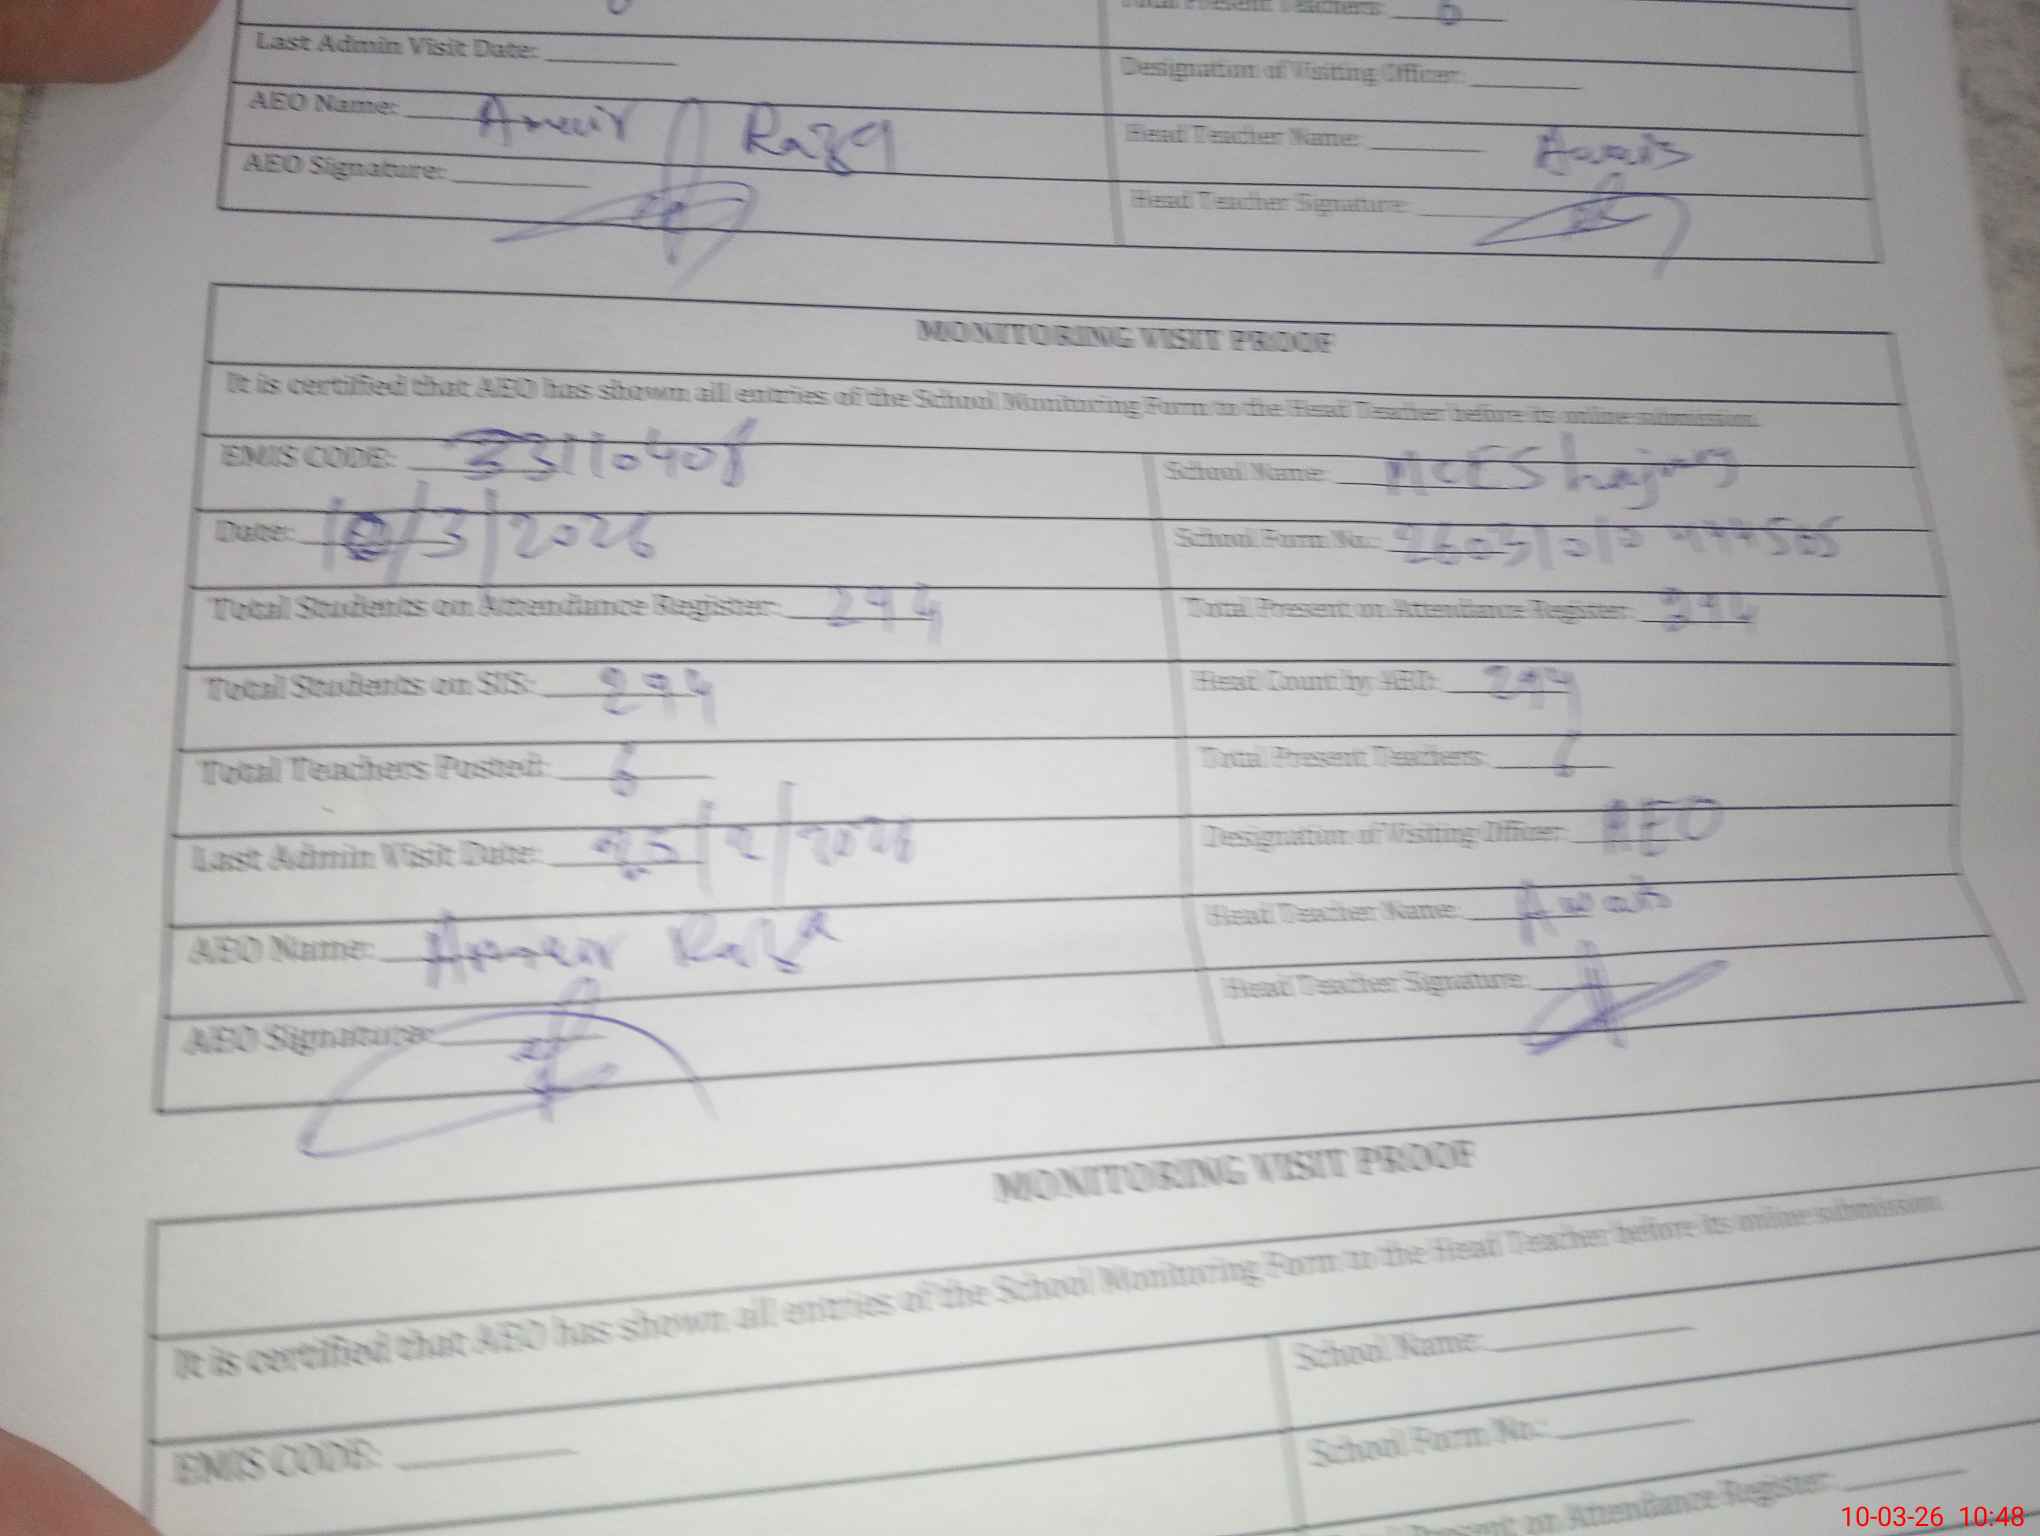 Total Present Teachers: 6
Last Admin Visit Date:
Designation of Visiting Officer:
AEO Name: Ameir Raza
Head Teacher Name: Awais
AEO Signature:
Head Teacher Signature:
MONITORING VISIT PROOF
It is certified that AEO has shown all entries of the School Monitoring Form to the Head Teacher before its online submission.
EMIS CODE: 33110408
School Name:
Date: 10/3/2026
School Form No.:
Total Students on Attendance Register: 294
Total Present on Attendance Register: 294
Total Students on SIS: 294
Head Count by AEO: 294
Total Teachers Posted: 6
Total Present Teachers: 6
Last Admin Visit Date: 25/2/2026
Designation of Visiting Officer: AEO
AEO Name: Ameir Raza
Head Teacher Name: Awais
AEO Signature:
Head Teacher Signature:
MONITORING VISIT PROOF
It is certified that AEO has shown all entries of the School Monitoring Form to the Head Teacher before its online submission.
EMIS CODE:
School Name:
School Form No.:
Present on Attendance Register:
10-03-26 10:48